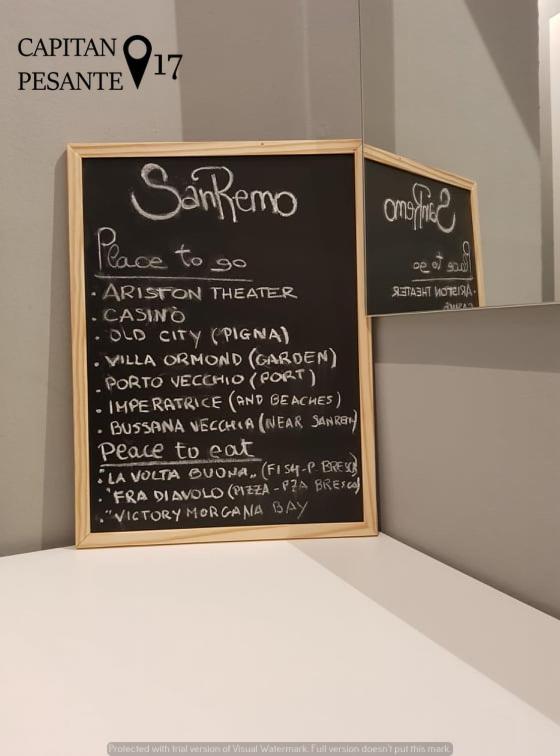 CAPITAN
PESANTE 17
SanRemo
Place to go
• ARISTON THEATER
• CASINÒ
• OLD CITY (PIGNA)
• VILLA ORMOND (GARDEN)
• PORTO VECCHIO (PORT)
• IMPERATRICE (AND BEACHES)
• BUSSANA VECCHIA (NEAR SANREMO)
Peace to eat
• "LA VOLTA BUONA" (FISH-P. BRESCA)
• "FRA DIAVOLO (PIZZA - PZA BRESCA)
• "VICTORY MORGANA BAY
SanRemo
Place to go
ARISTON THEATER
CASINÒ
Protected with trial version of Visual Watermark. Full version doesn't put this mark.